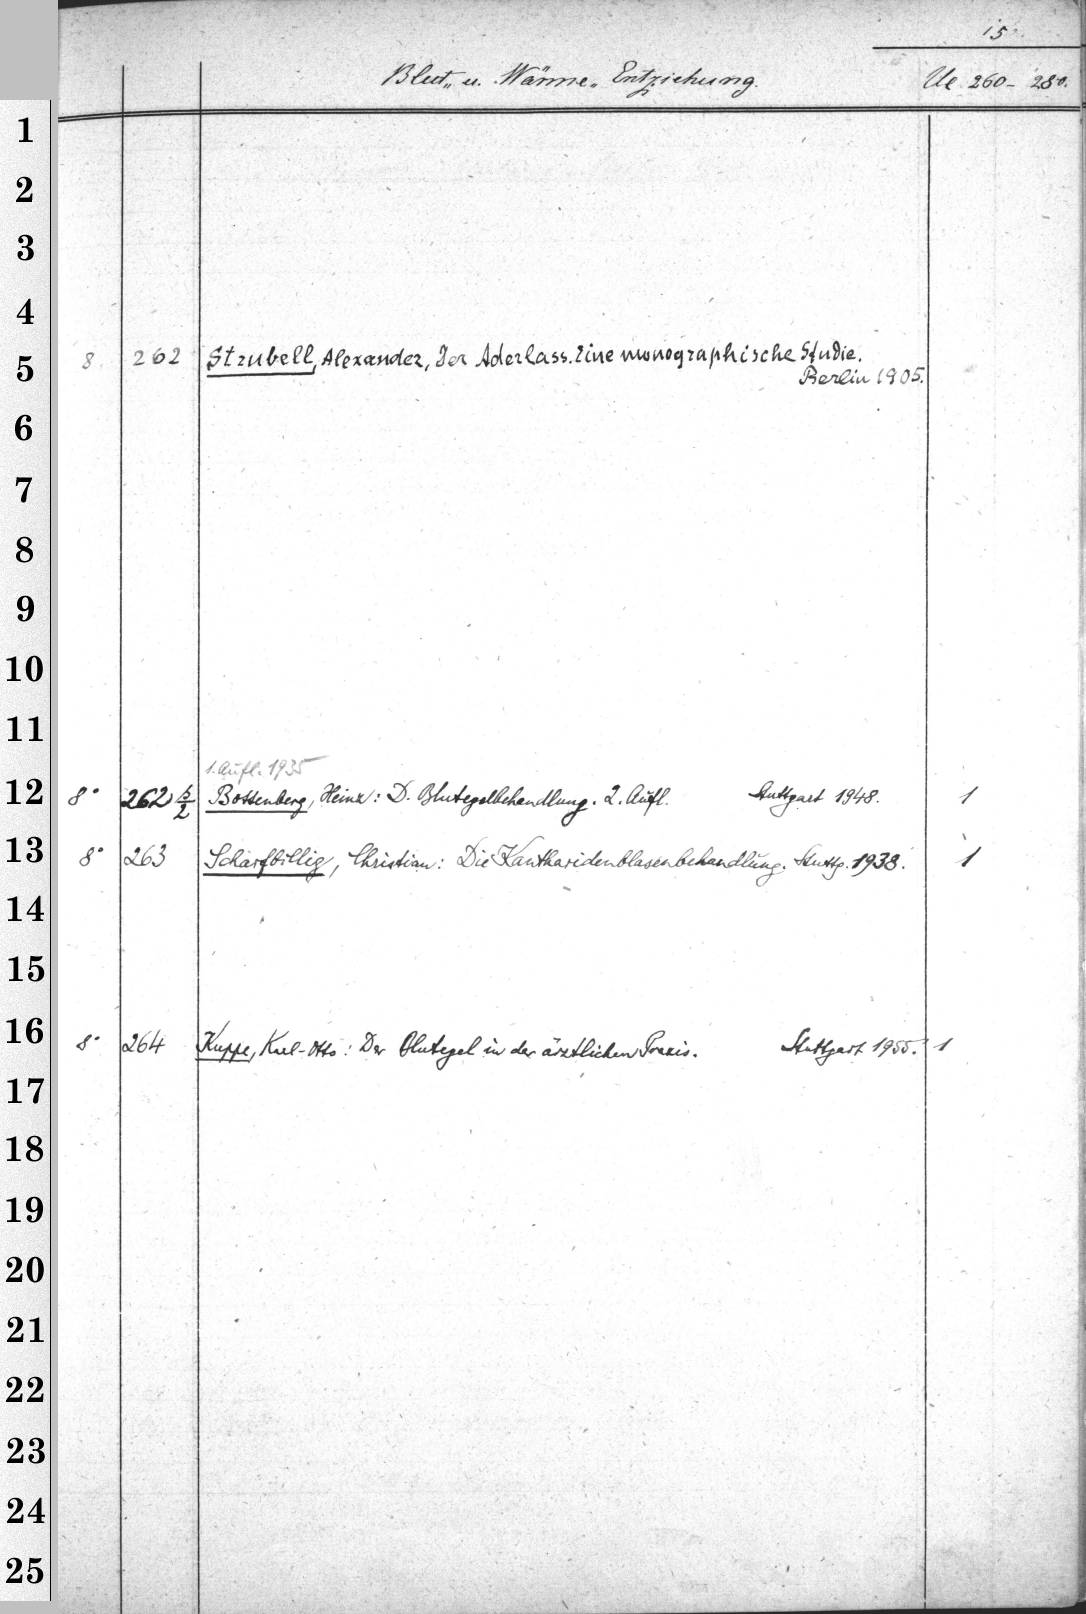 15
Blut- u. Wärme-Entziehung. Ue 260-280.
1
2
3
4
5 8. 262 Strubell, Alexander, Der Aderlass. Eine monographische Studie.
Berlin 1905.
6
7
8
9
10
11
1. Aufl. 1935
12 8° 262 b/2 Bottenberg, Heinz: D. Blutegelbehandlung. 2. Aufl. Stuttgart 1948. 1
13 8° 263 Scharfbillig, Christian: Die Kantharidenblasenbehandlung. Stuttg. 1938. 1
14
15
16 8° 264 Kuppe, Karl-Otto: Der Blutegel in der ärztlichen Praxis. Stuttgart 1955. 1
17
18
19
20
21
22
23
24
25